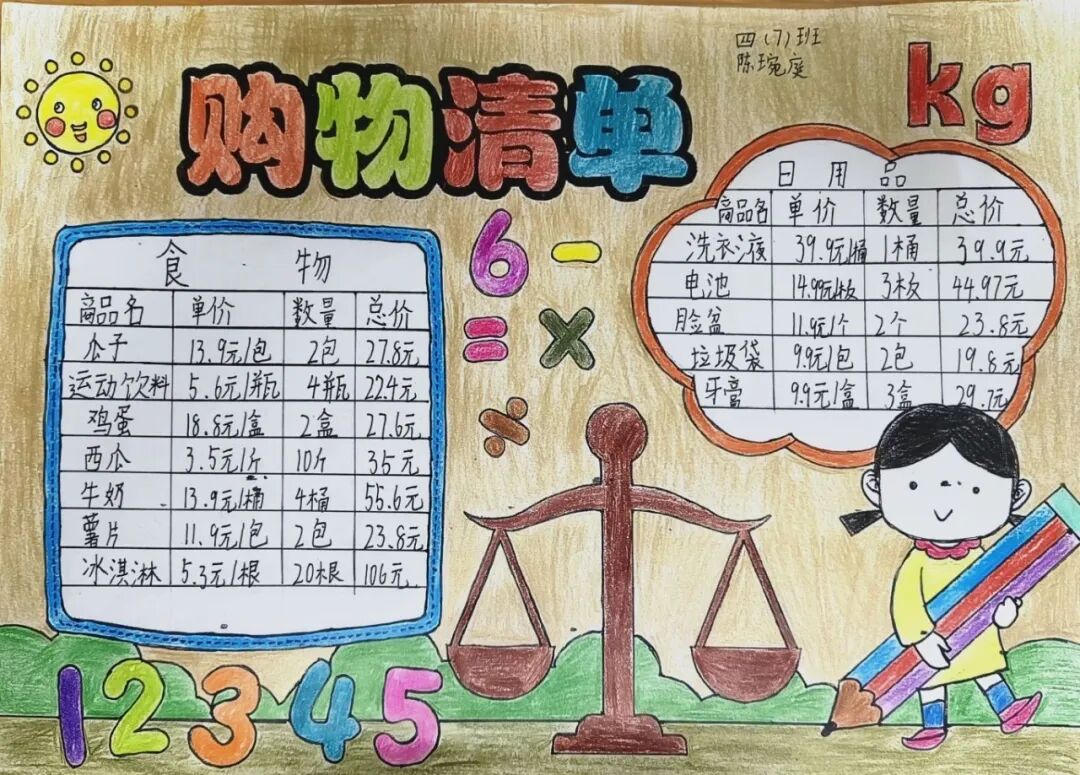 四(7)班
陈琬庭
购物清单
kg
食 物
商品名 单价 数量 总价
瓜子 13.9元/包 2包 27.8元
运动饮料 5.6元/瓶 4瓶 22.4元
鸡蛋 18.8元/盒 2盒 27.6元
西瓜 3.5元/斤 10斤 35元
牛奶 13.9元/桶 4桶 55.6元
薯片 11.9元/包 2包 23.8元
冰淇淋 5.3元/根 20根 106元
日用品
商品名 单价 数量 总价
洗衣液 39.9元/桶 1桶 39.9元
电池 14.99元/板 3板 44.97元
脸盆 11.9元/个 2个 23.8元
垃圾袋 9.9元/包 2包 19.8元
牙膏 9.9元/盒 3盒 29.7元
6 -
= ×
÷
1 2 3 4 5